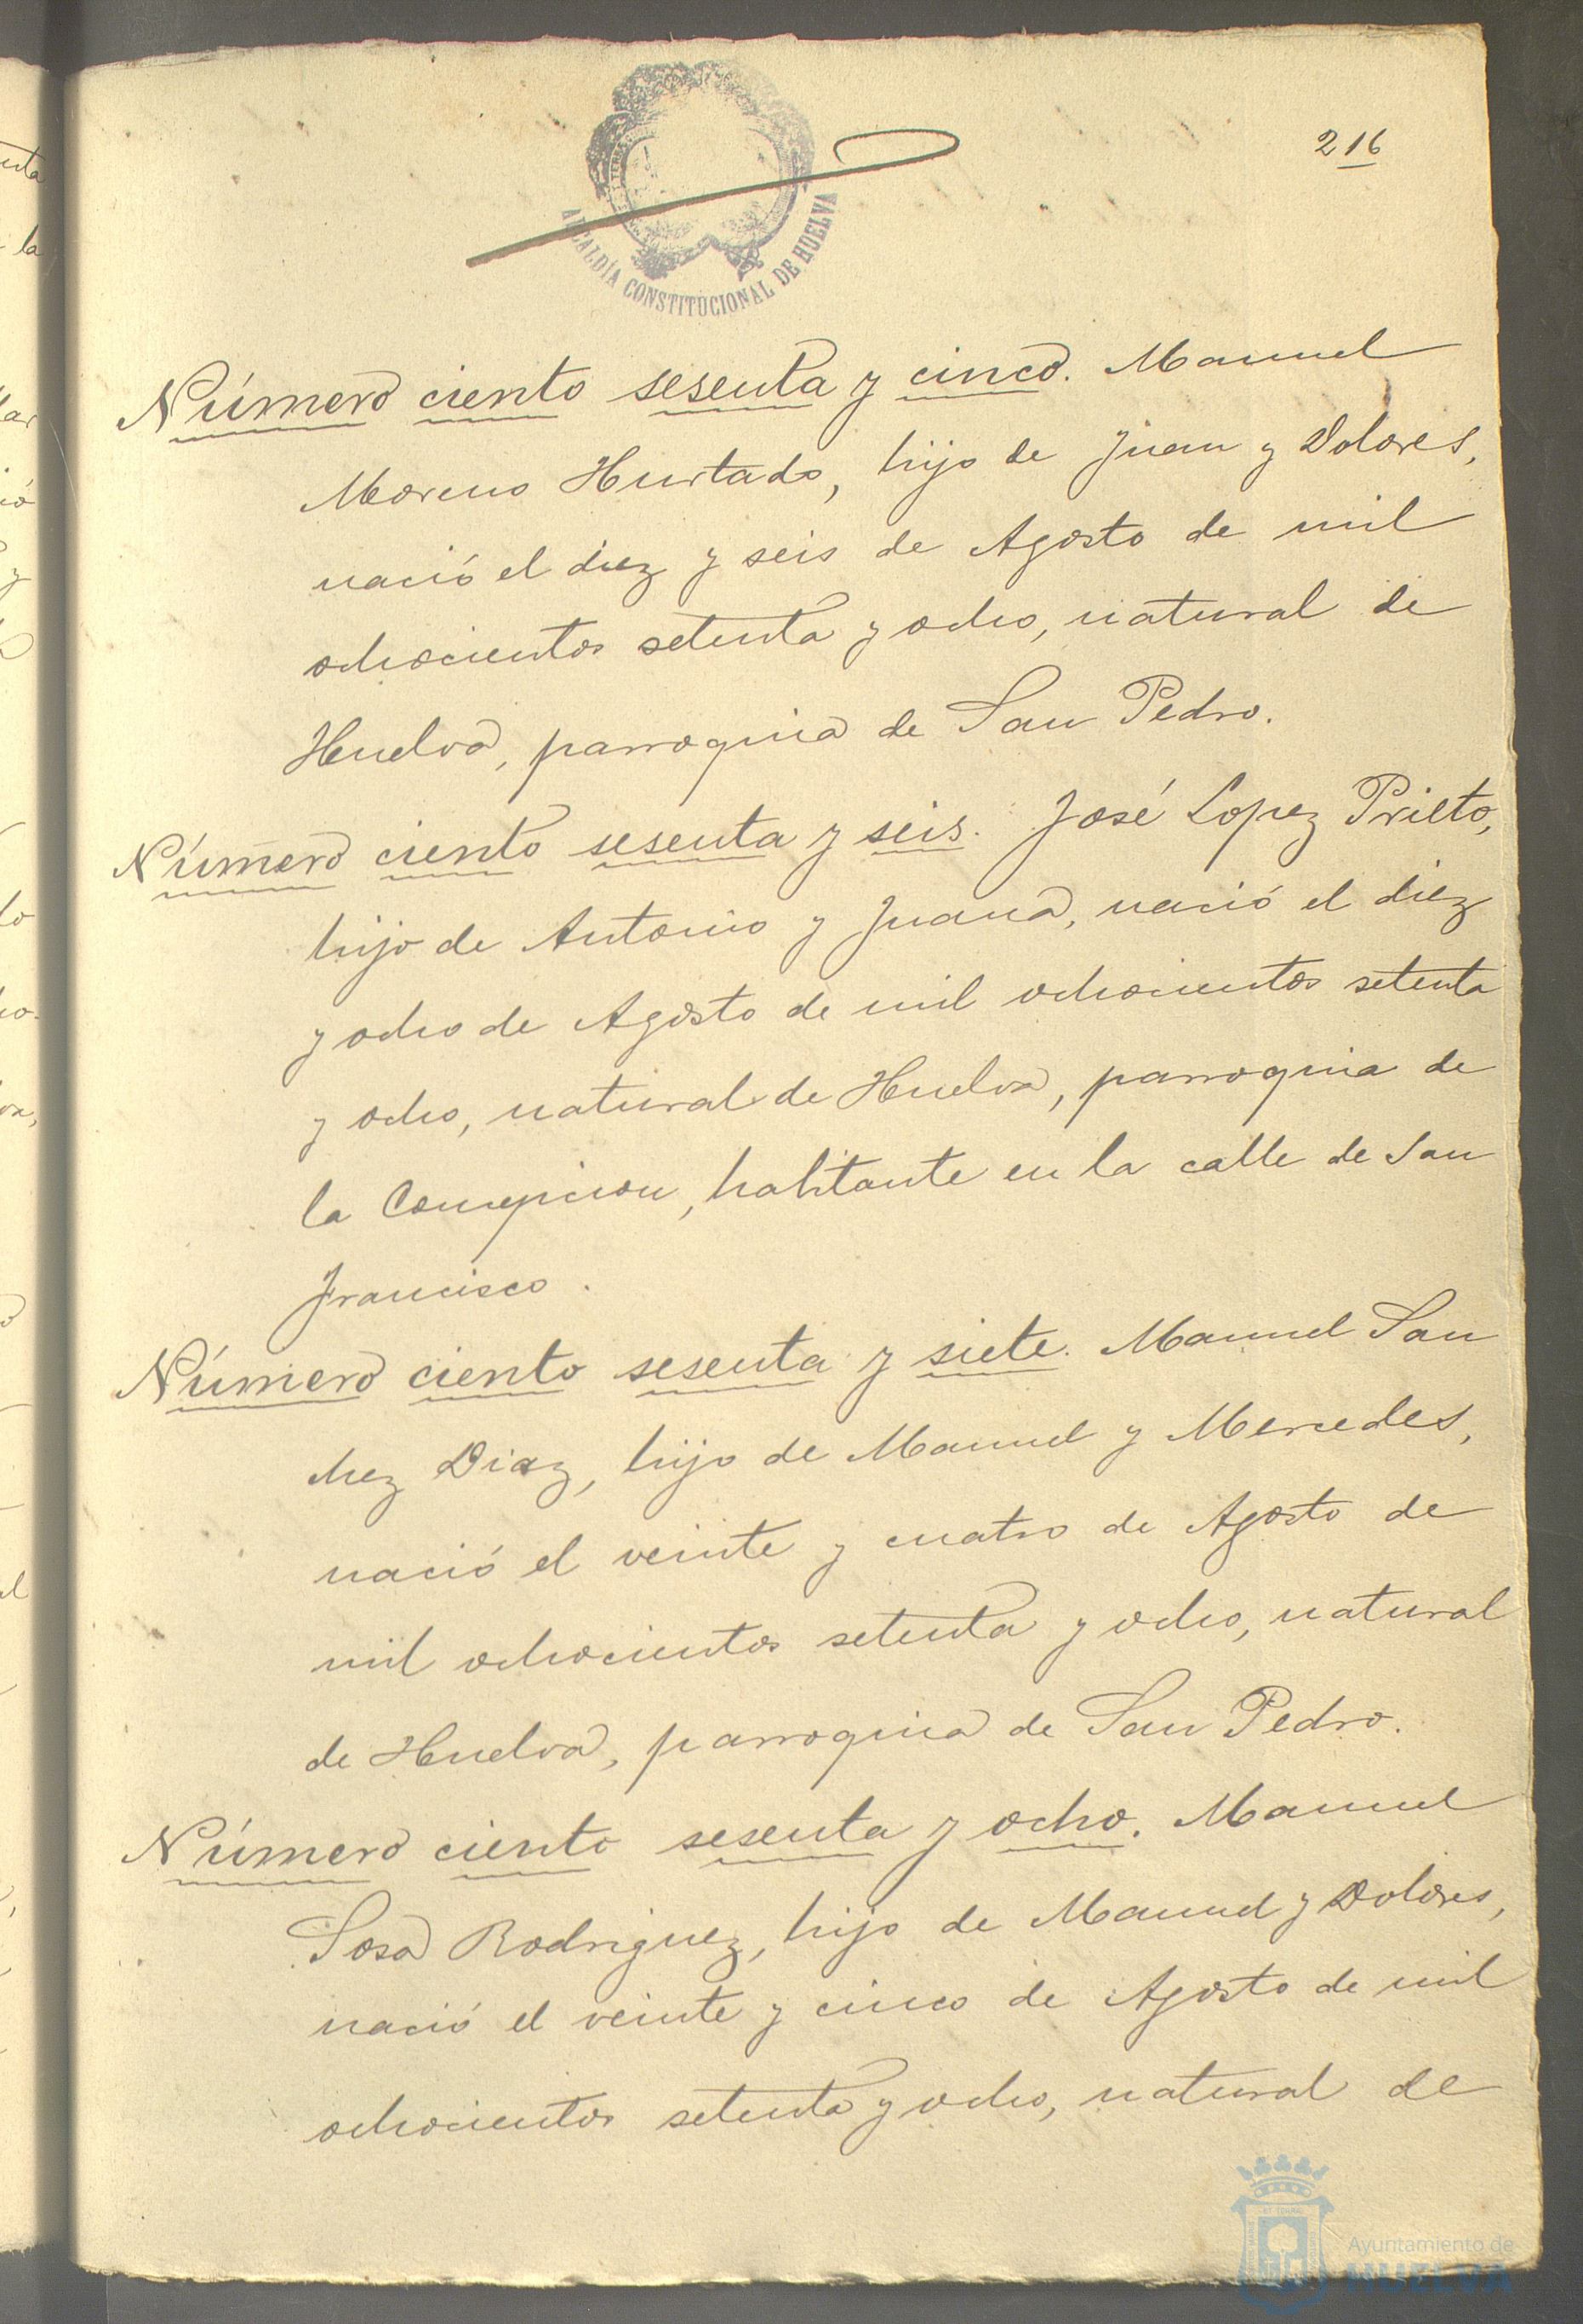 216
ALCALDÍA CONSTITUCIONAL DE HUELVA
Número ciento sesenta y cinco. Manuel
Moreno Hurtado, hijo de Juan y Dolores,
nació el diez y seis de Agosto de mil
ochocientos setenta y ocho, natural de
Huelva, parroquia de San Pedro.
Número ciento sesenta y seis. José Lopez Prieto,
hijo de Antonio y Juana, nació el diez
y ocho de Agosto de mil ochocientos setenta
y ocho, natural de Huelva, parroquia de
la Concepcion, habitante en la calle de San
Francisco.
Número ciento sesenta y siete. Manuel San
chez Diaz, hijo de Manuel y Mercedes,
nació el veinte y cuatro de Agosto de
mil ochocientos setenta y ocho, natural
de Huelva, parroquia de San Pedro.
Número ciento sesenta y ocho. Manuel
Sosa Rodriguez, hijo de Manuel y Dolores,
nació el veinte y cinco de Agosto de mil
ochocientos setenta y ocho, natural de
Ayuntamiento de
HUELVA